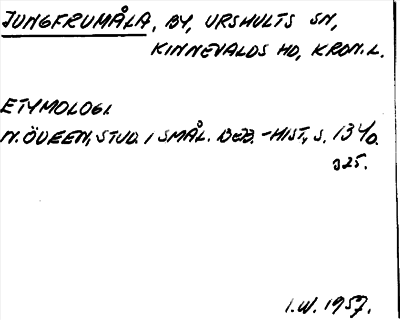 JUNGFRUMÅLA, BY, URSHULTS SN,
KINNEVALDS HD, KRON. L.
ETYMOLOGI.
N. ÖDEEN, STUD. I SMÅL. BEB.-HIST., S. 134 O.
325.
I.W. 1957.